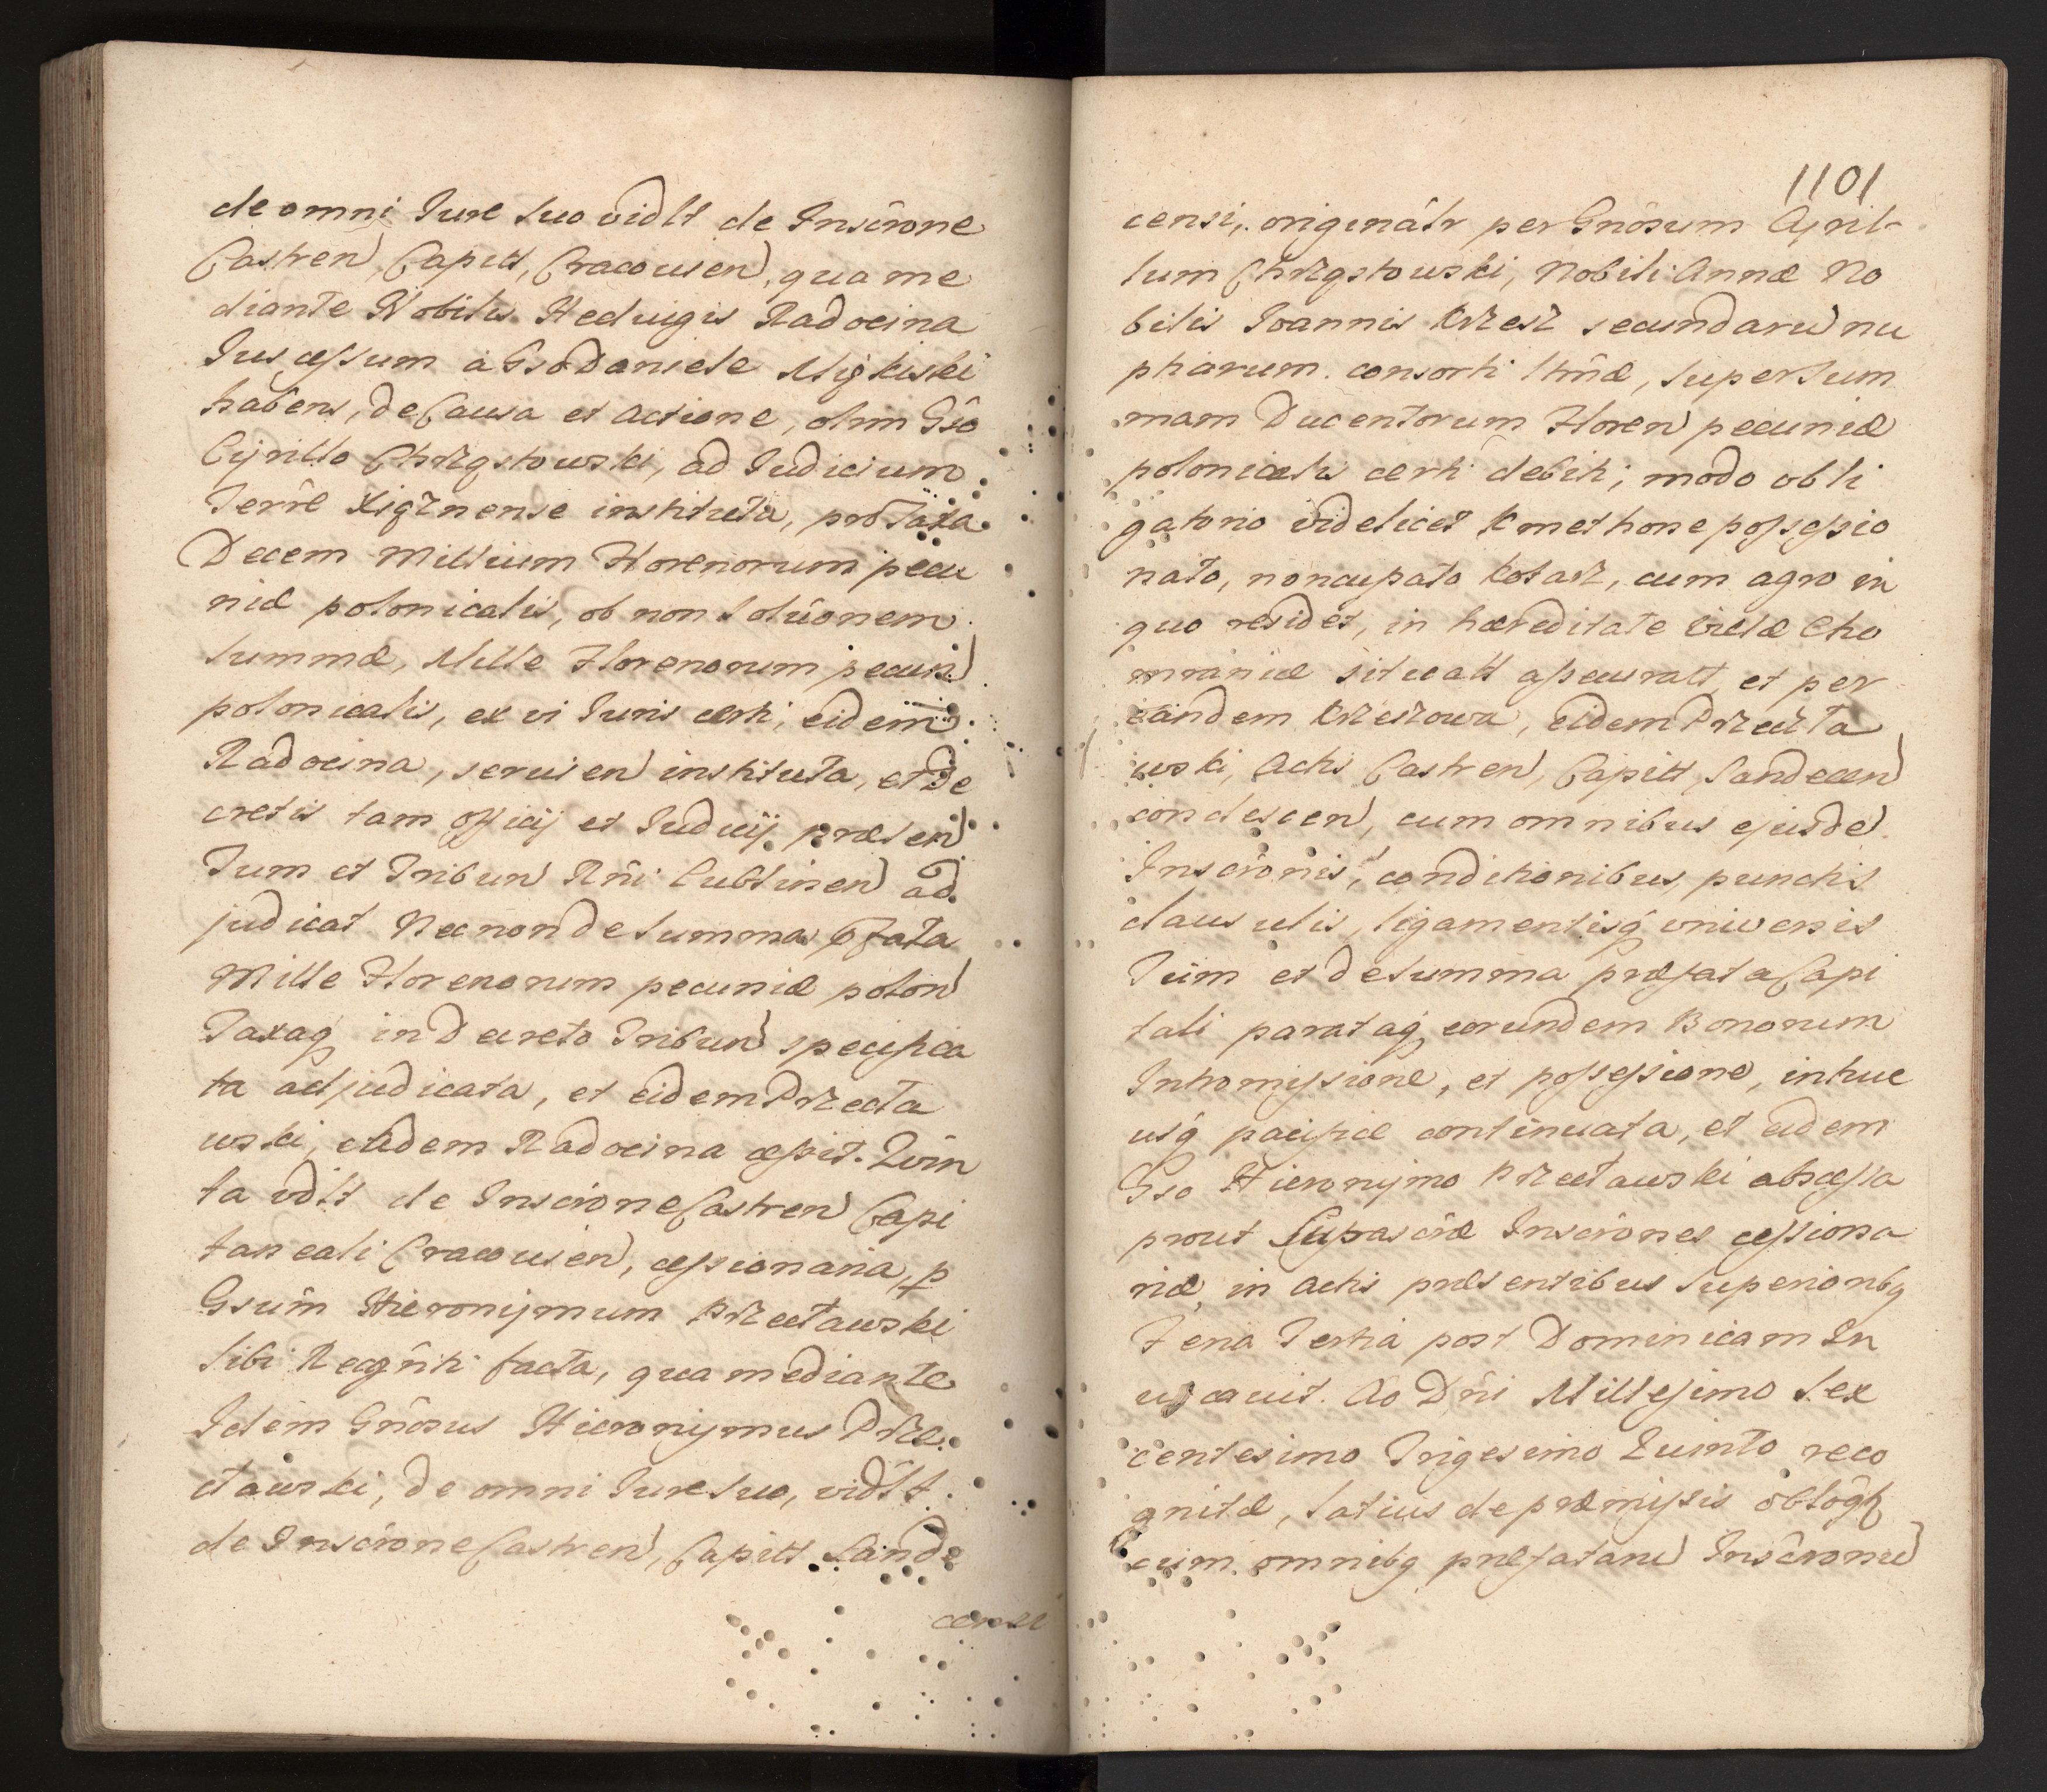 de omni Jure suo vidlt de Inscrône
Castren, Capitt, Cracovien, qua me
diante Nobilis Hedvigis Radocina
Jus cessum à Gso Daniele Migkiski
habens, de Causa et Actione, olim Gso
Cyrillo Chrzqstowski, ad Judicium
Terre Xigznense instituta, pro Taxa
Decem Millium Florenorum pecu
niæ polonicalis, ob non Solûonem
Summæ, Mille Florenorum pecun
polonicalis, ex vi Juris certi, eidem
Radocina, servien instituta, et De
cretis tam officij et Judicij præsen
Tum et Tribun Rñi Lublinen ad
judicat. Nec non de Summa pfata
Mille Florenorum pecuniæ polon
Taxaq in Decreto Tribun specifica
ta adjudicata, et eidem Przecta
wski, eadem Radocina cessit. Quin
ta vdlt de Inscrione Castren Capi
taneali Cracovien, cessionaria, p
Gsum Hieronymum Przectawski
sibi Recgñti facta, qua mediante
Idem Gñosus Hieronymus Prze
ctawski, de omni Jure suo, vidlt
de Inscrône Castren, Capitt Sande
censi
1101
censi, originâtr per Gnôsum Cyril-
lum Chrzqstowski, Nobili Annæ No
bilis Joannis Krzesz secundaru nu
ptiarum consorti lttñæ, super Sum
mam Ducentorum Floren pecuniæ
polonicalis certi debiti, modo obli
gatorio videlicet Kmethone possessio
nato, noncupato Kotarz, cum agro in
quo residet, in hæreditate Villæ Cho
mraniæ situatt assecuratt, et per
eandem Krzeszowa, eidem Przecta
wski, Actis Castren, Capitt, Sandecen
condescen, cum omnibus ejusde
Inscrônis, conditionibus, punctis
clausulis, ligamentisq universis
Tum et de summa præfata Capi
tali parataq eorundem Bonorum
Intromissione, et possessione, in huc
usq pacificæ continuata, et eidem
Gso Hieronymo Przectawski abscessa
prout Suprascræ Inscrônes cessiona
riæ, in Actis præsentibus superioribq
Feria Tertia post Dominicam In
vocavit. Ao Dñi Millesimo Sex
centesimo Trigesimo Quinto reco
gnitæ, latius de præmissis obloqr
cum omnibq præfataru Inscrônu